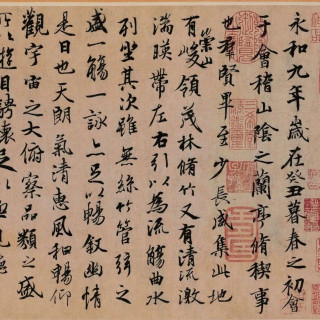 永和九年歲在癸丑暮春之初會
于會稽山陰之蘭亭脩稧事
也羣賢畢至少長咸集此地
有崇山峻領茂林脩竹又有清流激
湍暎帶左右引以為流觴曲水
列坐其次雖無絲竹管弦之
盛一觴一詠亦足以暢敘幽情
是日也天朗氣清惠風和暢仰
觀宇宙之大俯察品類之盛
所以遊目騁懷足以極視